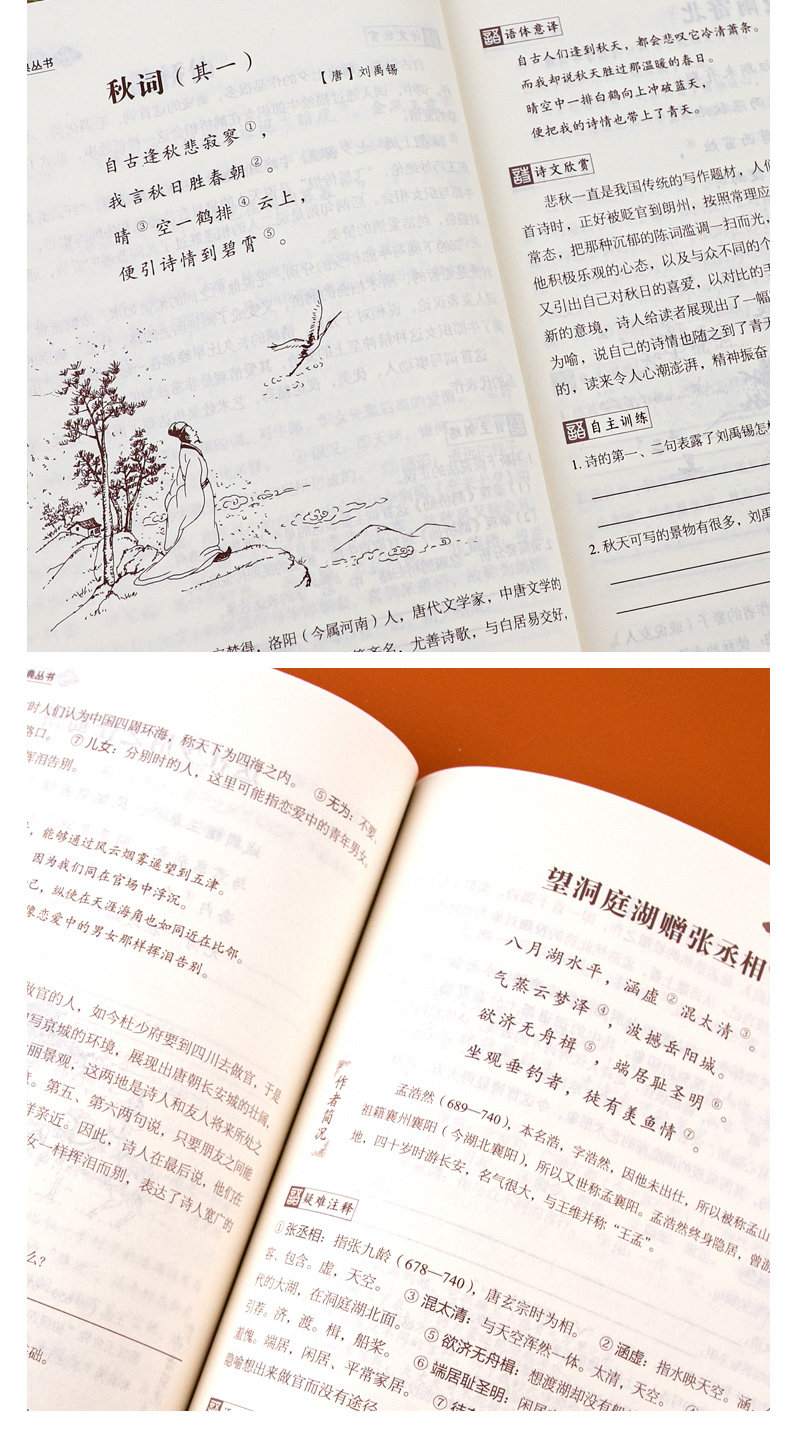 丛书
秋词（其一）
【唐】刘禹锡
自古逢秋悲寂寥①，
我言秋日胜春朝②。
晴③空一鹤排④云上，
便引诗情到碧霄⑤。
梦得，洛阳（今属河南）人，唐代文学家，中唐文学的
文名，尤善诗歌，与白居易交好，
语体意译
自古人们逢到秋天，都会悲叹它冷清萧条。
而我却说秋天胜过那温暖的春日。
晴空中一排白鹤向上冲破蓝天，
便把我的诗情也带上了青天。
诗文欣赏
悲秋一直是我国传统的写作题材，人们
首诗时，正好被贬官到朗州，按照常理应
常态，把那种沉郁的陈词滥调一扫而光，
他积极乐观的心态，以及与众不同的个
又引出自己对秋日的喜爱，以对比的手
新的意境，诗人给读者展现出了一幅
为喻，说自己的诗情也随之到了青天
的，读来令人心潮澎湃，精神振奋
自主训练
1. 诗的第一、二句表露了刘禹锡怎样
2. 秋天可写的景物有很多，刘禹
典丛书
时人们认为中国四周环海，称天下为四海之内。 ⑤无为：不要、
路口。 ⑦儿女：分别时的人，这里可能指恋爱中的青年男女。
挥泪告别。
，能够通过风云烟雾遥望到五津。
因为我们同在官场中浮沉。
己，纵使在天涯海角也如同近在比邻。
像恋爱中的男女那样挥泪告别。
做官的人，如今杜少府要到四川去做官，于是
写京城的环境，展现出唐朝长安城的壮阔，
丽景观，这两地是诗人和友人将来所处之
。第五、第六两句说，只要朋友之间能
样亲近。因此，诗人在最后说，他们在
女一样挥泪而别，表达了诗人宽广的
么？
础。
望洞庭湖赠张丞相
八月湖水平，涵虚②混太清③。
气蒸云梦泽④，波撼岳阳城。
欲济无舟楫⑤，端居耻圣明⑥。
坐观垂钓者，徒有羡鱼情⑦。
作者简况
孟浩然（689—740），本名浩，字浩然，因他未出仕，所以被称孟山
祖籍襄州襄阳（今湖北襄阳），所以又世称孟襄阳。孟浩然终身隐居，曾游
地，四十岁时游长安，名气很大，与王维并称“王孟”。
疑难注释
①张丞相：指张九龄（678—740），唐玄宗时为相。 ②涵虚：指水映天空。涵，
容、包含。虚，天空。 ③混太清：与天空浑然一体。太清，天空。
代的大湖，在洞庭湖北面。 ⑤欲济无舟楫：想渡湖却没有船
引荐。济，渡。楫，船桨。 ⑥端居耻圣明：闲居
羞愧。端居，闲居、平常家居。 ⑦徒
隐喻想出来做官而没有途径